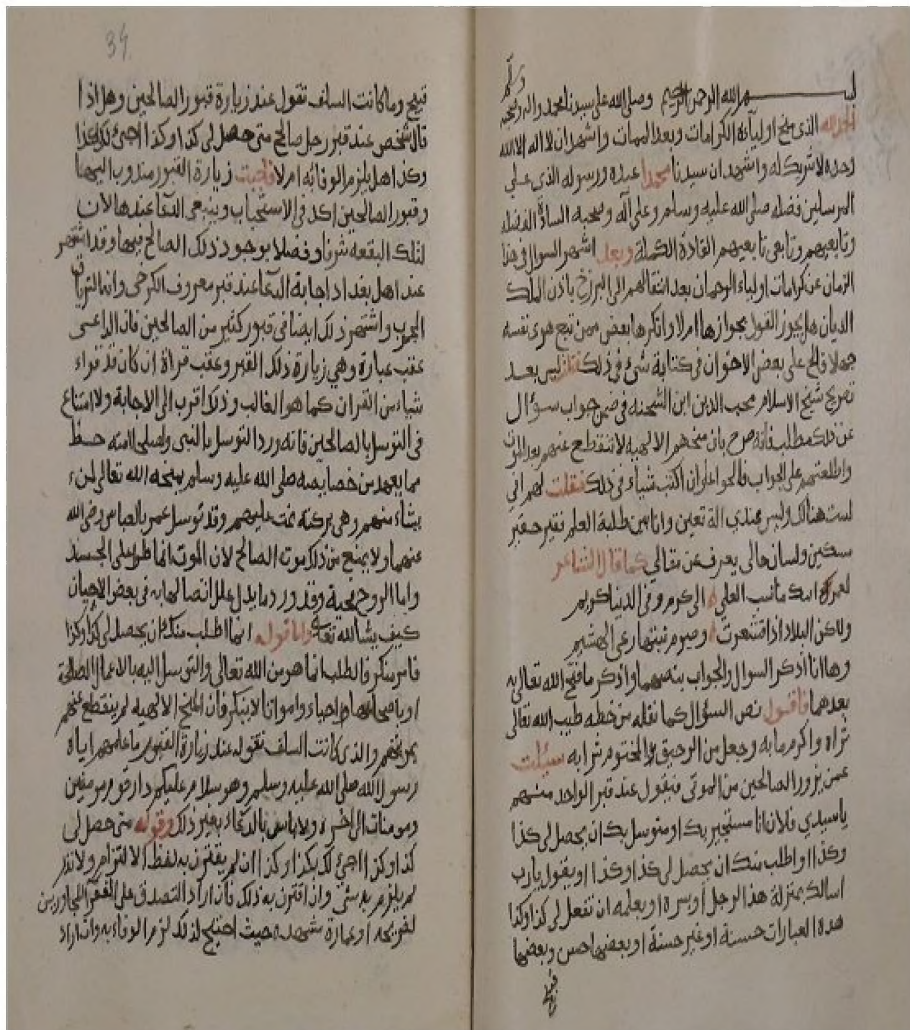 بسم الله الرحمن الرحيم وصلى الله على سيدنا محمد واله وصحبه وسلم
الحمد لله الذي منح اولياءه الكرامات وبعد الممات واشهد ان لا اله الا الله
وحده لا شريك له واشهد ان سيدنا محمدا عبده ورسوله الذي على
المرسلين فضله صلى الله عليه وسلم وعلى آله وصحبه السادة الفضله
وتابعيهم وتابعي تابعيهم القادة الكملة وبعد اشتهر السوال في هذا
الزمان عن كرامات اولياء الرحمان بعد انتقالهم الى البرزخ باذن الملك
الديان هل يجوز القول بجوازها ام لا وانكرها بعض ممن تبع هوى نفسه
جهلا فالح على بعض الاخوان في كتابة شيء في ذلك فقلت ليس بعد
تصريح شيخ الاسلام محب الدين ابن الشحنه في ضمن جواب سؤال
عن ذلك مطلب فانه صرح بان منحهم الالهية لا تنقطع عنهم بعد الموت
واطلعتهم على الجواب فالحوا على ان اكتب شيأ في ذلك فقلت لهم اني
لست هنالك وليس عندي الة تعين وانا بين طلبة العلم فقير حقير
مسكين ولسان حالي يعرف عن مقالي كما قال الشاعر
لعمرك ما نسب المعلى الى كرم وفي الدنيا كريم
ولكن البلاد اذا اقشعرت وصوح نبتها رعي الهشيم
وها انا اذكر السوال والجواب بنصهما واذكر ما فتح الله تعالى به
بعدهما فاقول نص السؤال كما نقله من خطه طيب الله تعالى
ثراه واكرم مابه وجعل من الرحيق المختوم شرابه سيلت
عمن يزور الصالحين من الموتى فيقول عند قبر الواحد منهم
يا سيدي فلان انا مستجير بك او متوسل بك ان يحصل لي كذا
وكذا او اطلب منك ان يحصل لي كذا وكذا او يقول يا رب
اسالك بمنزلة هذا الرجل او بسره او بعلمه ان تفعل لي كذا وكذا
هذه العبارات حسنة او غير حسنة او بعضها حسن وبعضها
قبيح
34
قبيح وما كانت السلف تقول عند زيارة قبور الصالحين وهل اذا
قال شخص عند قبر رجل صالح متى حصل لي كذا وكذا اجئ لك بكذا
وكذا هل يلزم الوفا به ام لا فاجبت زيارة القبور مندوب اليها
وقبور الصالحين اكد في الاستحباب وينبغي الدعا عندها لان
لتلك البقعه شرفا وفضلا بوجود ذلك الصالح فيها وقد اشتهر
عند اهل بغداد اجابة الدعا عند قبر معروف الكرخي وانه الترياق
المجرب واشتهر ذلك ايضا في قبور كثير من الصالحين فان الداعي
عقب عبارة وهي زيارة ذلك القبر وعقب قراة ان كان قد قراء
شيأ من القران كما هو الغالب وذلك اقرب الى الاجابة ولا امتناع
في التوسل بالصالحين فانه ورد التوسل بالنبي ولصلحا امته حظ
مما يعهد من خصايصه صلى الله عليه وسلم يمنحه الله تعالى لمن
يشاء منهم وهي بركته تمت عليهم وقد توسل عمر بالعباس رضى الله
عنهما ولا يمنع من ذلك موته الصالح لان الموت انما طرا على الجسد
واما الروح فحية وقد ورد ما يدل على اتصالها به في بعض الاحيان
كيف يشا الله تعالى واما قوله انما اطلب منك ان يحصل لي كذا وكذا
فامر منكر فالطلب انما هو من الله تعالى والتوسل اليه بالاعمال الصالحة
او باصحابها احياء وامواتا لا ينكر فان المنح الالهيه لم ينقطع عنهم
بموتهم والذي كانت السلف تقوله عند زيارة القبور ما علمهم اياه
رسول الله صلى الله عليه وسلم وهو سلام عليكم دار قوم مومنين
ومومنات الى اخره ولا باس بالدعاء بغير ذلك وقوله متى حصل لي
كذا وكذا اجئ لك بكذا وكذا ان لم يقترن به لفظ الالتزام ولا نذر
لم يلزم به شئ وان اقترن به ذلك فان اراد التصدق على الفقراء المجاورين
لضريحه او عمارة مشهده حيث احتيج لذلك لزم الوفاء به وان اراد